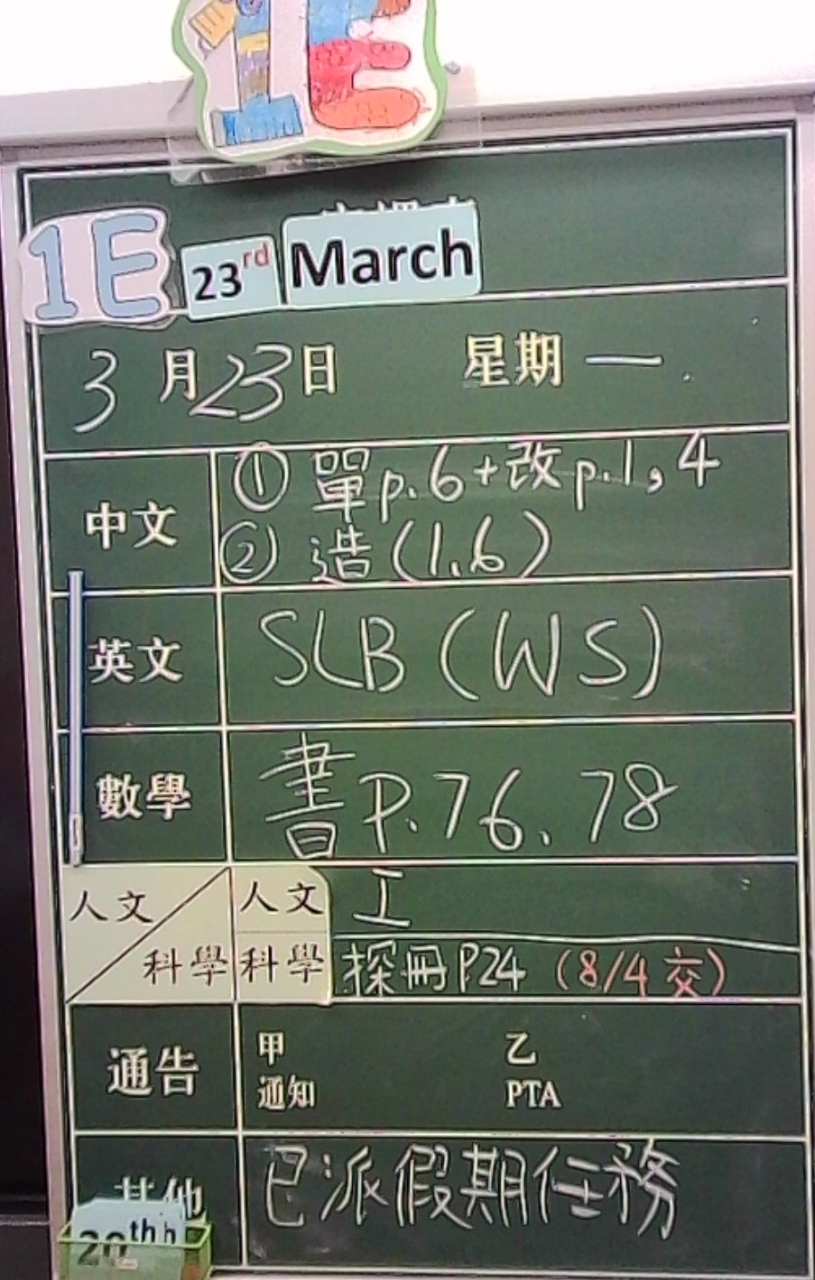 1E
1E 23rd March
3月23日 星期一
中文 ① 單p.6+改p.1,4
② 造(1.6)
英文 SLB (WS)
數學 書P.76、78
人文 人文 工
科學 科學 探冊P24 (8/4交)
通告 甲 乙
通知 PTA
其他 已派假期任務
20th